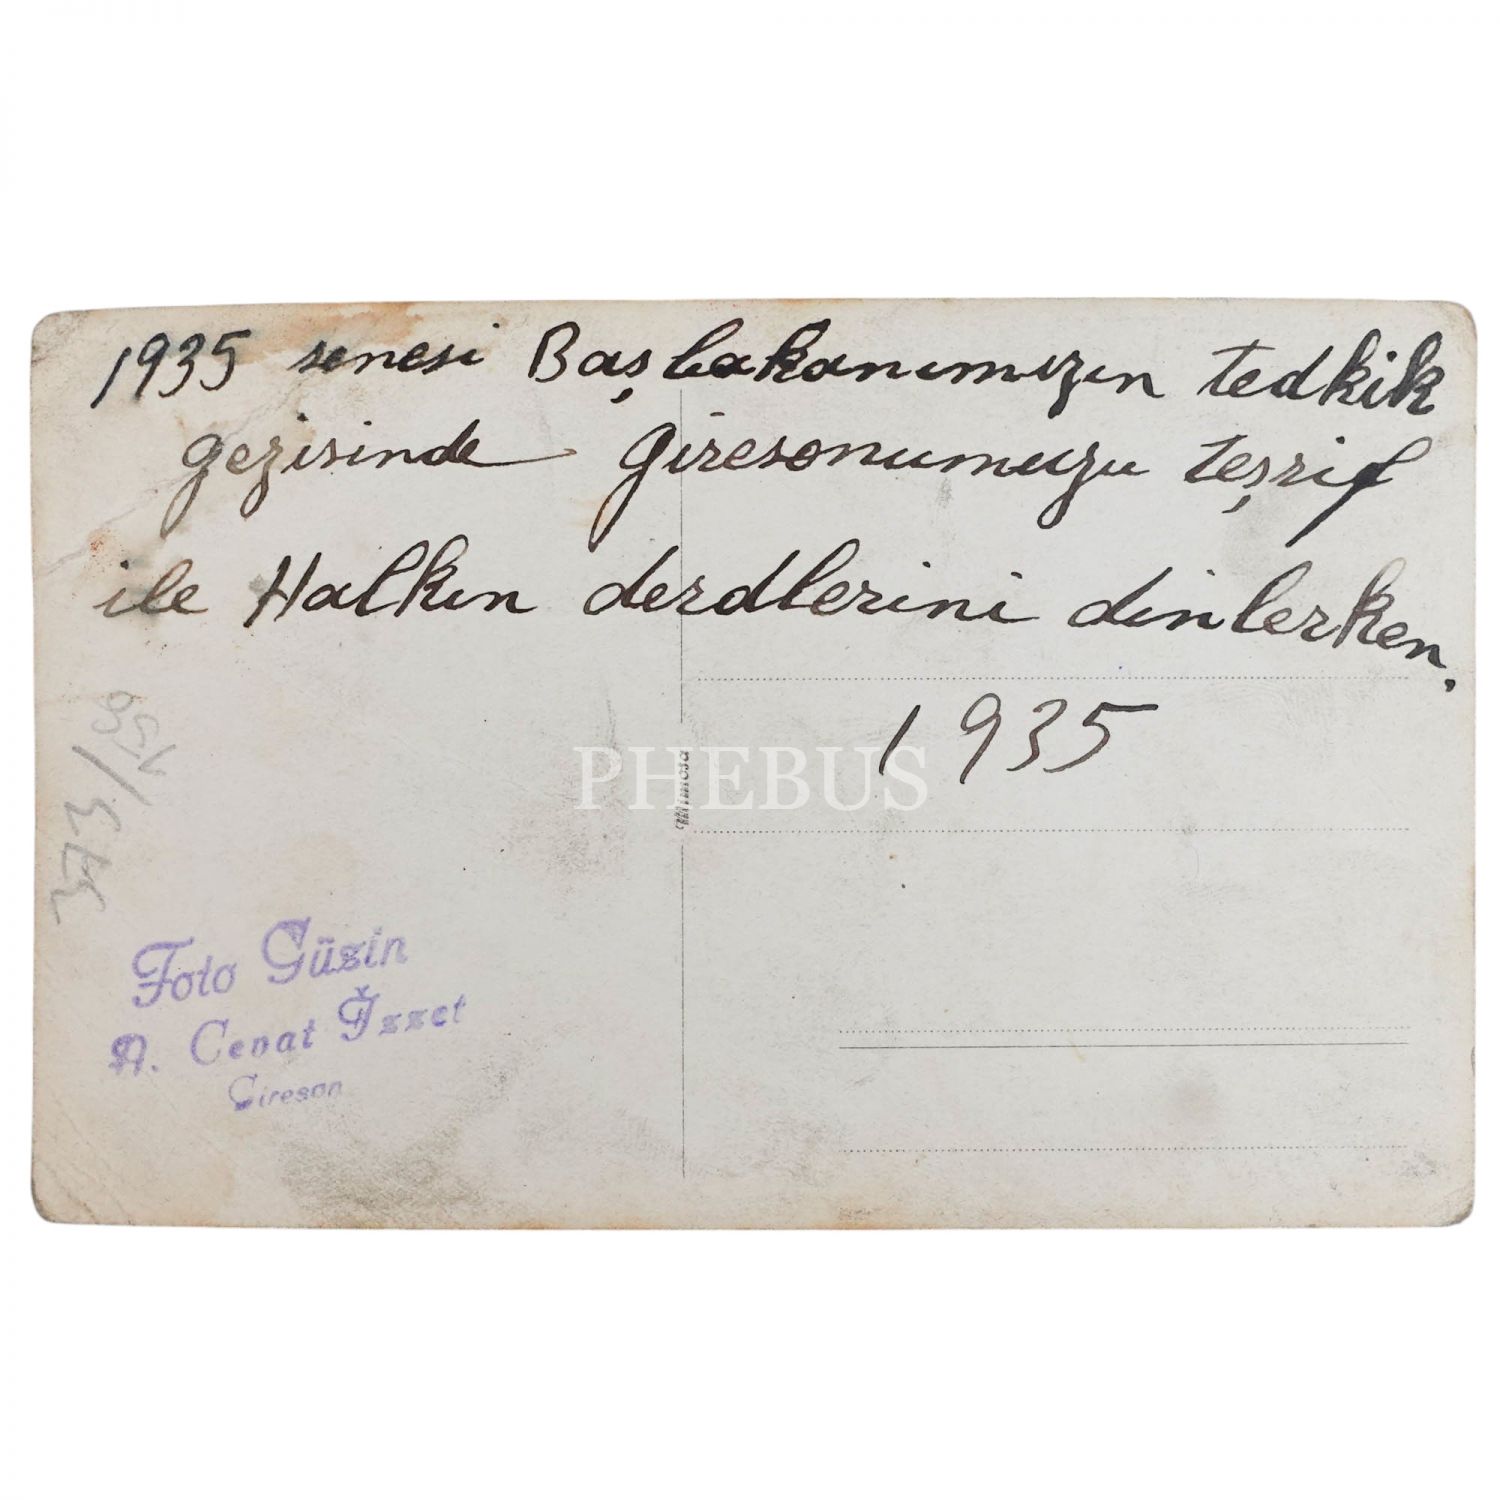 1935 senesi Başbakanımızın tedkik
gezisinde Giresonumuzu teşrif
ile Halkın derdlerini dinlerken.
1935
PHEBUS
Mimosa
Foto Güzin
A. Cevat İzzet
Gireson